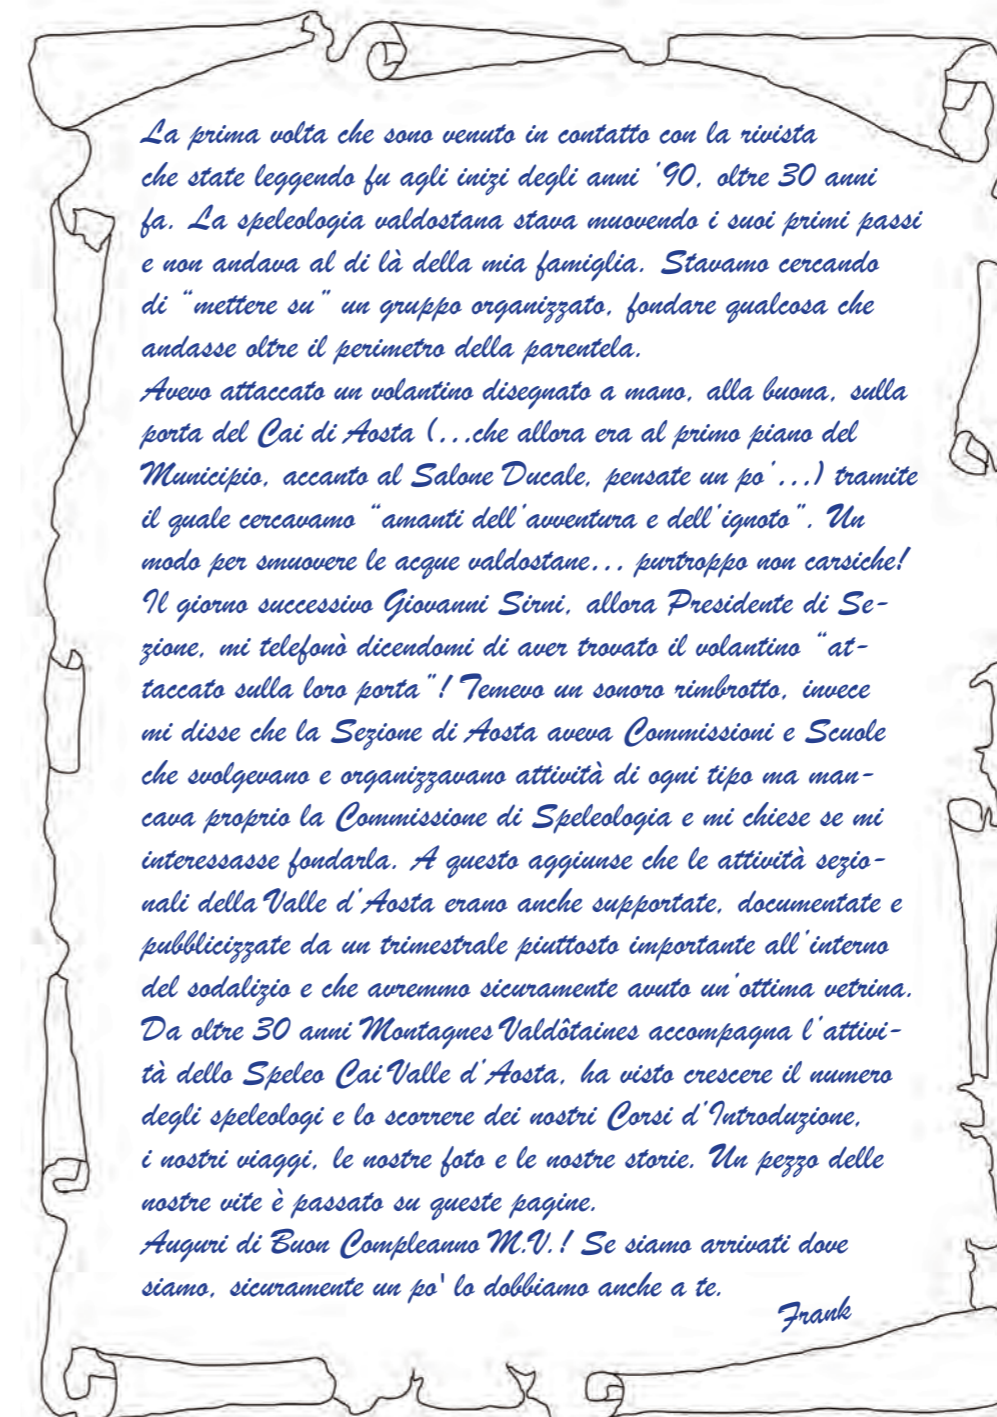 La prima volta che sono venuto in contatto con la rivista
che state leggendo fu agli inizi degli anni '90, oltre 30 anni
fa. La speleologia valdostana stava muovendo i suoi primi passi
e non andava al di là della mia famiglia. Stavamo cercando
di "mettere su" un gruppo organizzato, fondare qualcosa che
andasse oltre il perimetro della parentela.
Avevo attaccato un volantino disegnato a mano, alla buona, sulla
porta del Cai di Aosta (...che allora era al primo piano del
Municipio, accanto al Salone Ducale, pensate un po'...) tramite
il quale cercavamo "amanti dell'avventura e dell'ignoto". Un
modo per smuovere le acque valdostane... purtroppo non carsiche!
Il giorno successivo Giovanni Sirni, allora Presidente di Se-
zione, mi telefonò dicendomi di aver trovato il volantino "at-
taccato sulla loro porta"! Temevo un sonoro rimbrotto, invece
mi disse che la Sezione di Aosta aveva Commissioni e Scuole
che svolgevano e organizzavano attività di ogni tipo ma man-
cava proprio la Commissione di Speleologia e mi chiese se mi
interessasse fondarla. A questo aggiunse che le attività sezio-
nali della Valle d'Aosta erano anche supportate, documentate e
pubblicizzate da un trimestrale piuttosto importante all'interno
del sodalizio e che avremmo sicuramente avuto un'ottima vetrina.
Da oltre 30 anni Montagnes Valdôtaines accompagna l'attivi-
tà dello Speleo Cai Valle d'Aosta, ha visto crescere il numero
degli speleologi e lo scorrere dei nostri Corsi d'Introduzione,
i nostri viaggi, le nostre foto e le nostre storie. Un pezzo delle
nostre vite è passato su queste pagine.
Auguri di Buon Compleanno M.V.! Se siamo arrivati dove
siamo, sicuramente un po' lo dobbiamo anche a te.
Frank